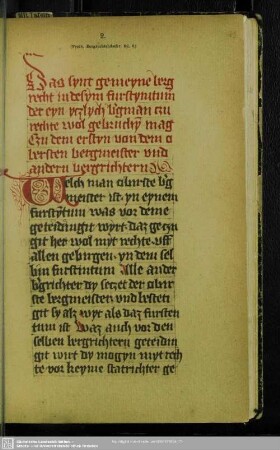 2.
Daz synt gemeyne berg
recht in desym furstintum
der eyn yczlych bgman czu
rechte wol gebruchyn mag
Czu dem ersten von dem o
bersten bergmeister und
andern bergrichtern
Welch man obirste bg
meister ist yn eynem
furstytum was vor deme
geteidingit wyrt daz geczu
git her wol myt rechte uff
allen gebirgen yn dem sel
bin furstintum Alle ander
bgrichter dy seczet der obir
ste bergmeister und besteti
git sy alz wyt als daz fursten
tum ist Waz auch vor den
selben bergrichtern geteidin
git wirt dy mogyn myt rech
te vor keyme statrichter ge